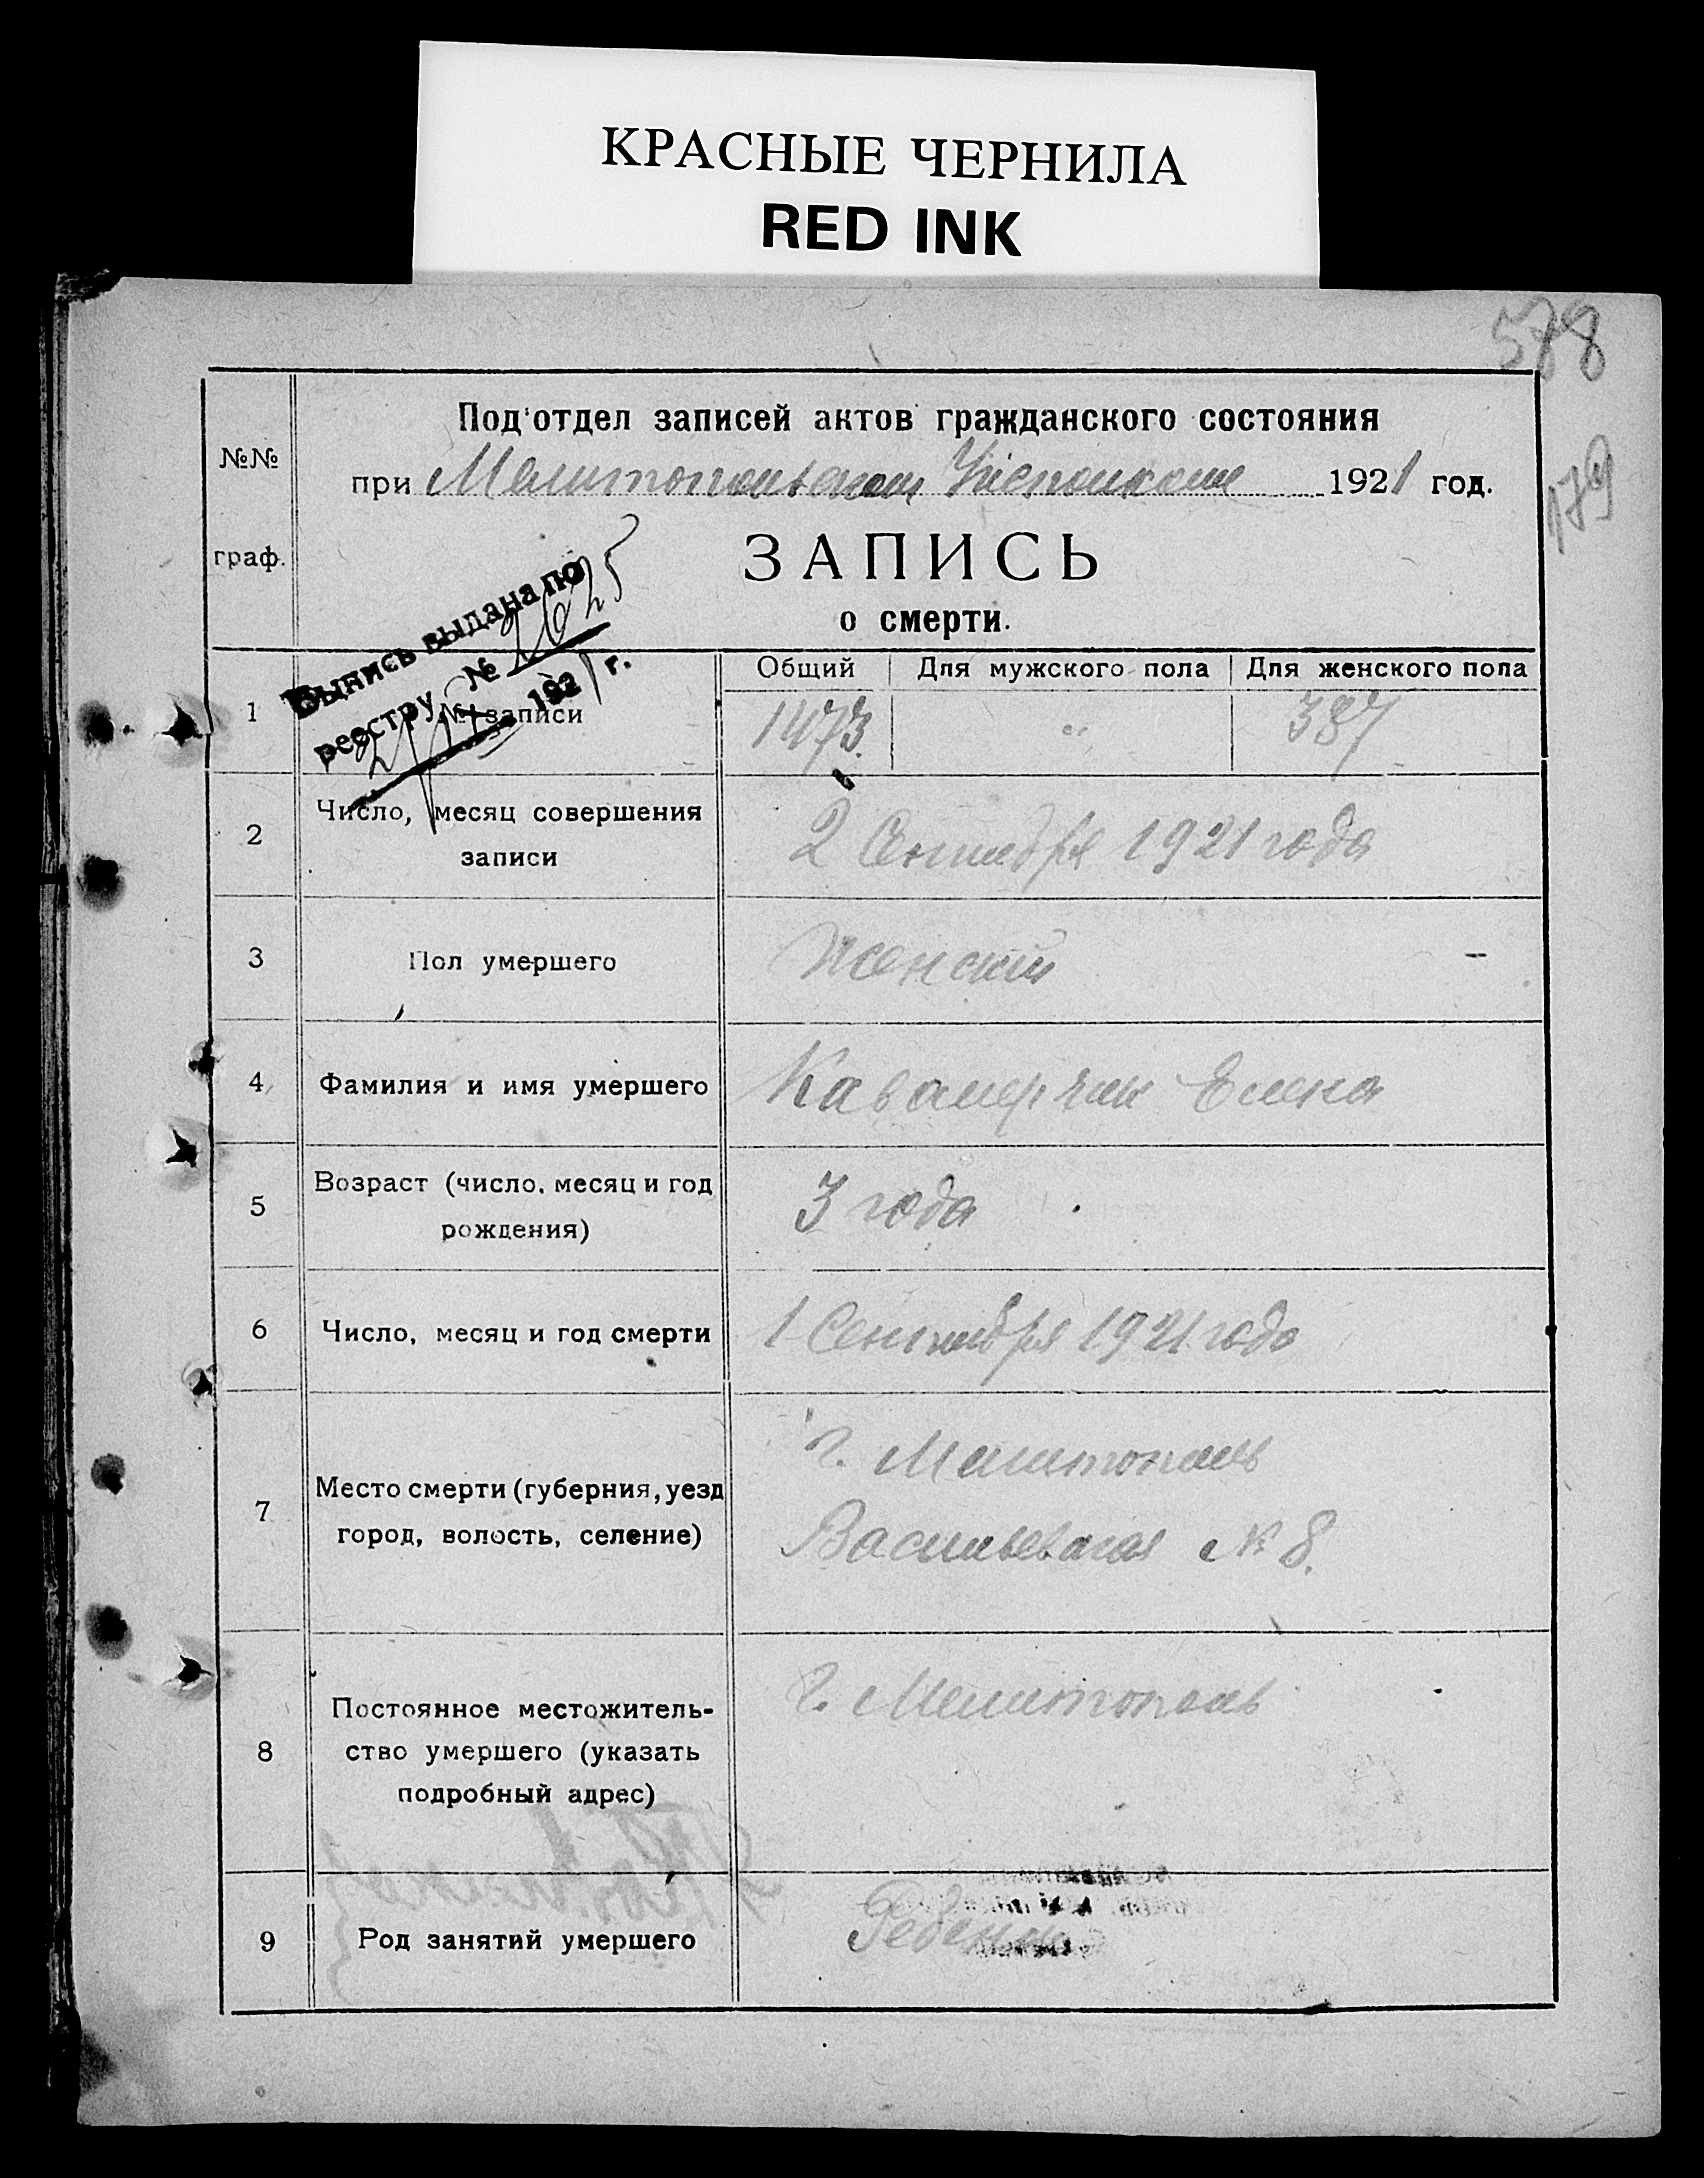 КРАСНЫЕ ЧЕРНИЛА
RED INK
578
179
№№
граф.
Под'отдел записей актов гражданского состояния
при Мелитопольском Уисполкоме 1921 год.
ЗАПИСЬ
о смерти.
Выпись выдана по
реестру № 2625
192 г.
Общий Для мужского пола Для женского пола
1 № записи 1473 " 387
2 Число, месяц совершения
записи
2 Сентября 1921 года
3 Пол умершего Женский
4 Фамилия и имя умершего Кавалерчик Елена
5 Возраст (число, месяц и год
рождения)
3 года
6 Число, месяц и год смерти 1 Сентября 1921 года
7 Место смерти (губерния, уезд
город, волость, селение)
г. Мелитополь
Васильевская № 8.
8 Постоянное местожитель-
ство умершего (указать
подробный адрес)
г. Мелитополь
9 Род занятий умершего Ребенок